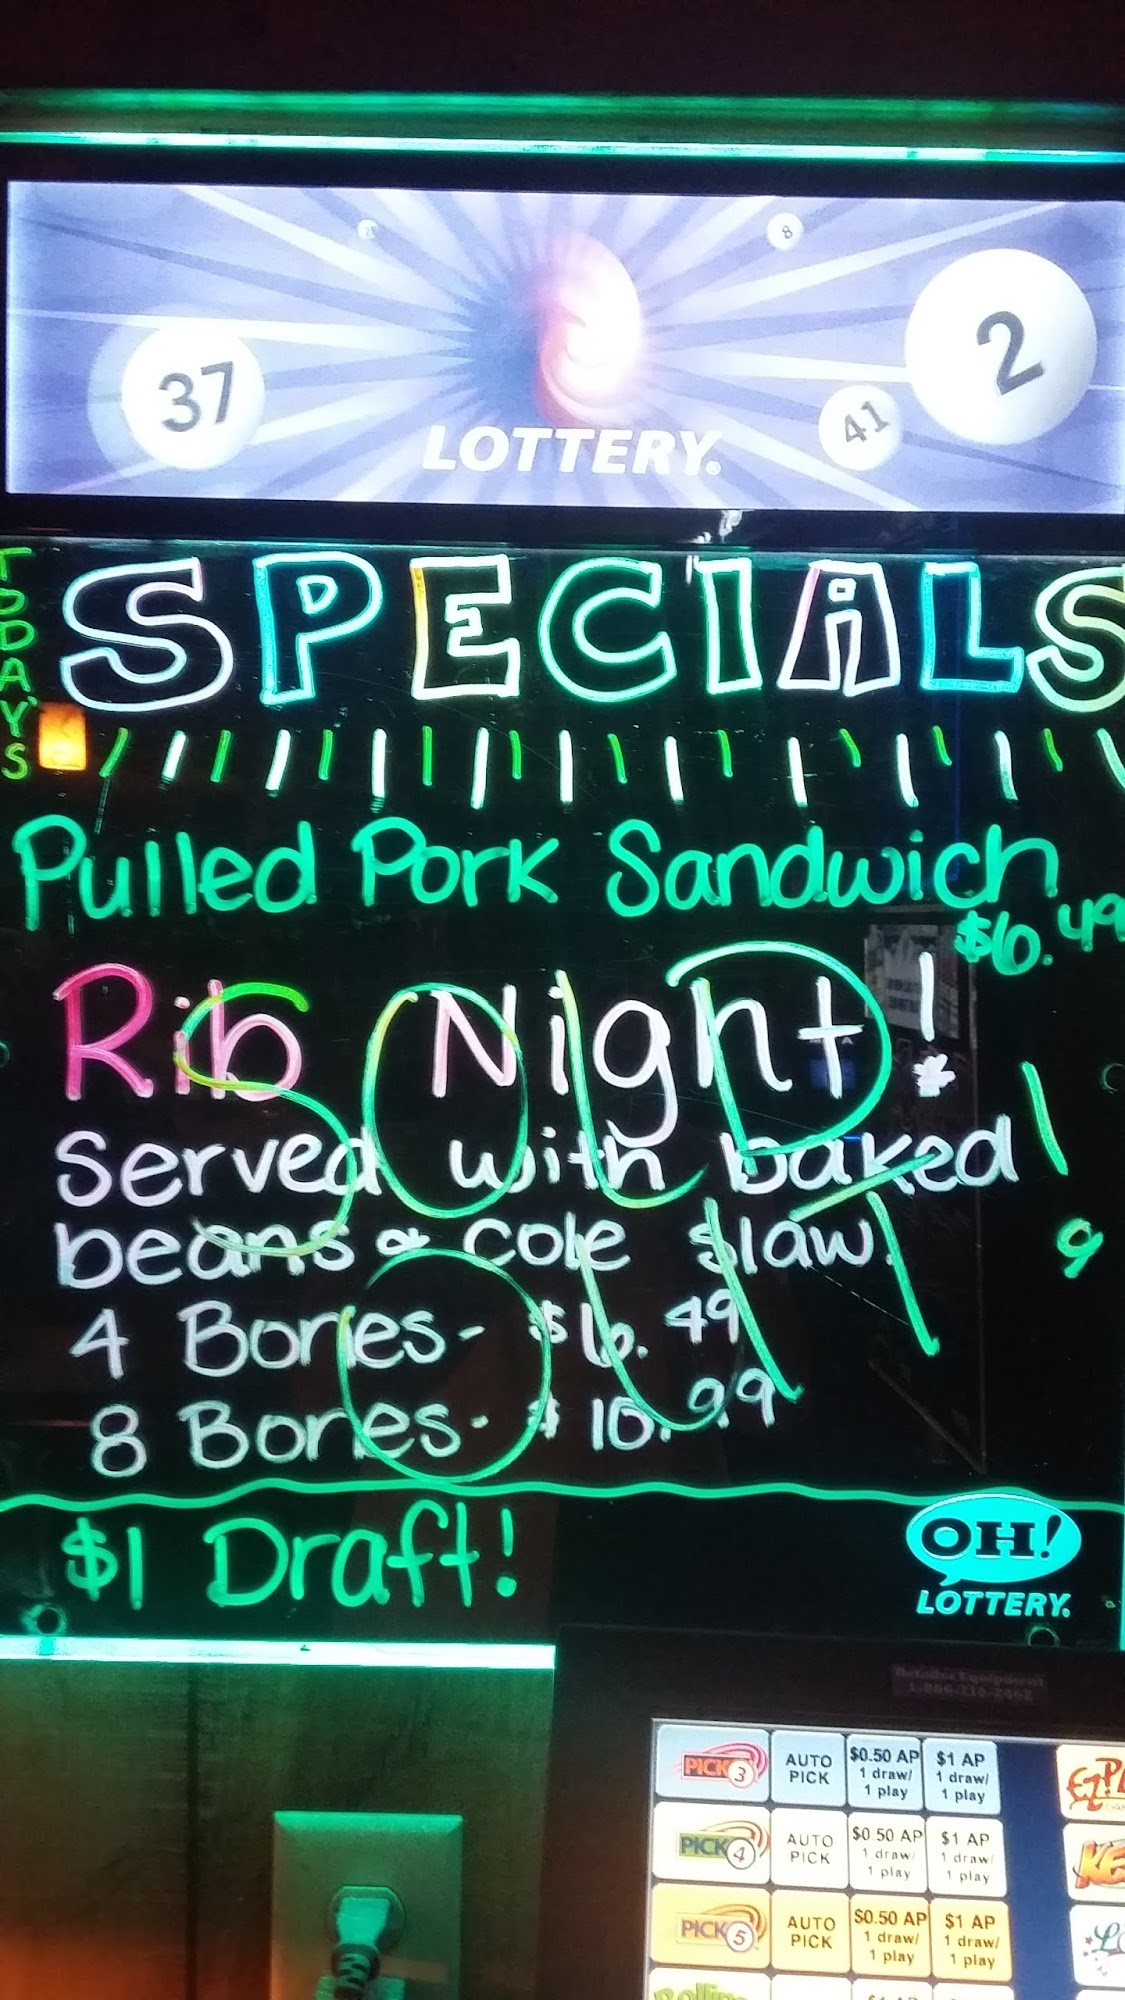 37
8
2
41
LOTTERY.
TODAY'S
SPECIALS
Pulled Pork Sandwich
$6.49
Rib Night!
*
served with baked
beans & cole slaw.
4 Bones- $6.49
8 Bones- $10.99
SOLD
OUT!
$1 Draft!
OH!
LOTTERY.
Retailer Equipment
1-866-210-2462
PICK 3 AUTO PICK $0.50 AP 1 draw/ 1 play $1 AP 1 draw/ 1 play
PICK 4 AUTO PICK $0.50 AP 1 draw/ 1 play $1 AP 1 draw/ 1 play
PICK 5 AUTO PICK $0.50 AP 1 draw/ 1 play $1 AP 1 draw/ 1 play